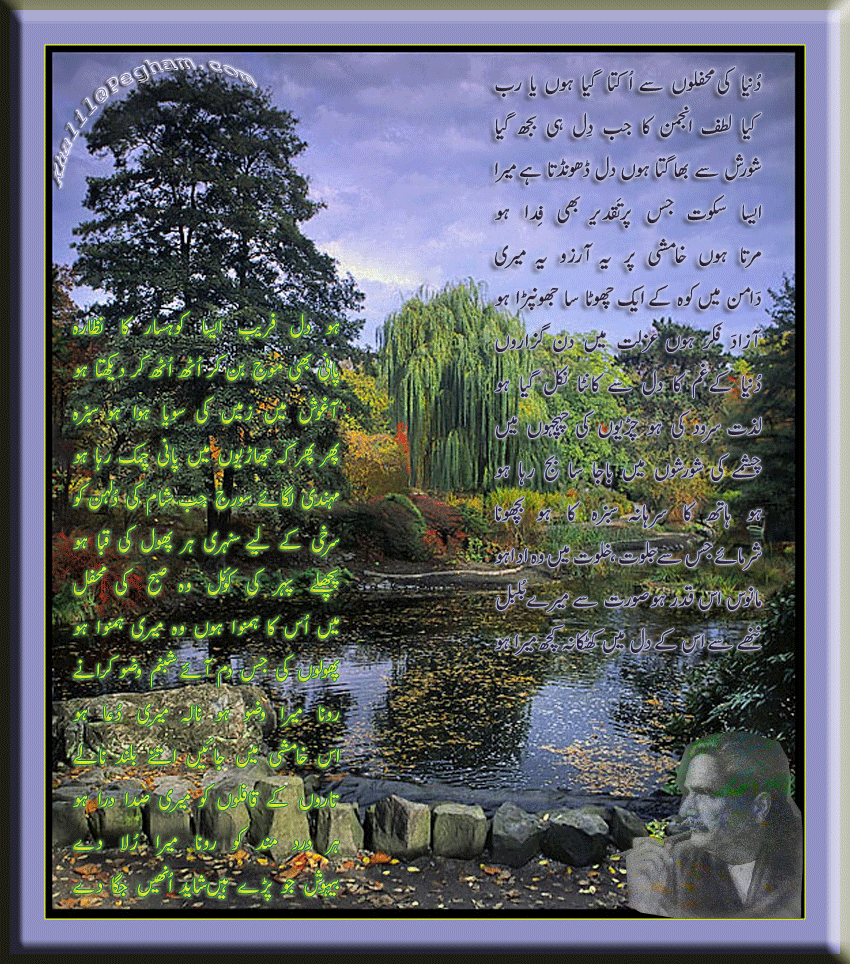 khalil@Pegham.com
دُنیا کی محفلوں سے اُکتا گیا ہوں یا رب
کیا لطف انجمن کا جب دِل ہی بجھ گیا
شورش سے بھاگتا ہوں دل ڈھونڈتا ہے میرا
ایسا سکوت جس پر تقدیر بھی فِدا ہو
مرتا ہوں خامشی پر یہ آرزو یہ میری
دَامن میں کوہ کے ایک چھوٹا سا جھونپڑا ہو
آزاد فکر ہوں عزلت میں دن گزاروں
دُنیا کے غم کا دل سے کانٹا نکل گیا ہو
لذت سرود کی ہو چڑیوں کی چہچہوں میں
چشمے کی شورشوں میں باجا سا بج رہا ہو
ہو ہاتھ کا سرہانہ سبزہ کا ہو بچھونا
شرمائے جس سے جلوت، خلوت میں وہ ادا ہو
مانوس اس قدر ہو صورت سے میرے بُلبل
ننھے سے اس کے دل میں کھٹکا نہ کچھ میرا ہو
ہو دل فریب ایسا کوہسار کا نظارہ
پانی بھی موج بن کر اُٹھ اُٹھ کر دیکھتا ہو
آغوش میں زمیں کی سویا ہوا ہو سبزہ
پھر پھر کہ جھاڑیوں میں پانی چمک رہا ہو
مہندی لگائے سورج جب شام کی دُلہن کو
سرخی کے لیے سنہری ہر پھول کی قبا ہو
پچھلے پہر کی کوئل وہ صبح کی محفل
میں اُس کا ہمنوا ہوں وہ میری ہمنوا ہو
پھولوں کی جس دم آئے شبنم وضو کرانے
رونا میرا وضو ہو نالہ میری دُعا ہو
اس خامشی میں جائیں اتنے بلند نالے
تاروں کے قافلوں کو میری صدا درا ہو
ہر درد مند کو رونا میرا رُلا دے
بیہوش جو پڑے ہیں شاید اُنھیں جگا دے